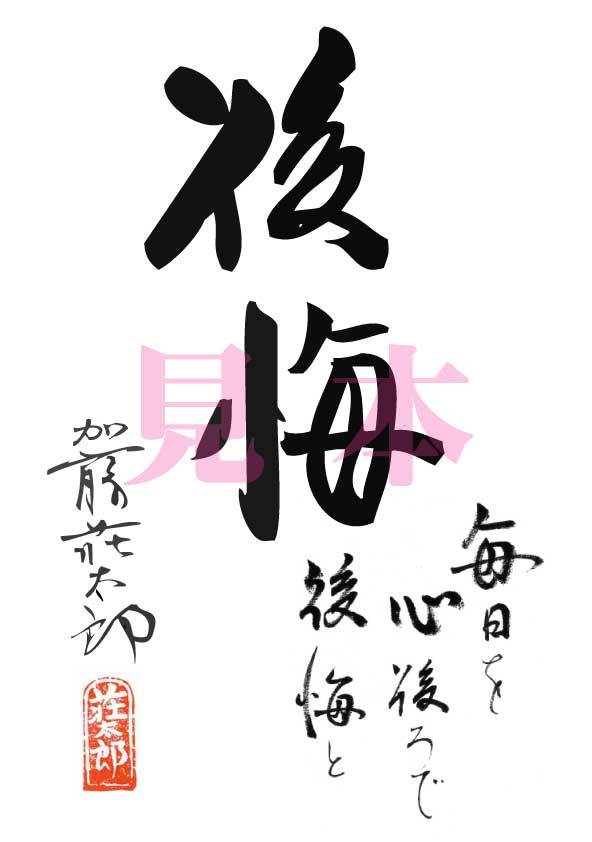 後悔
見本
毎日を
心後ろで
後悔と
加藤荘太郎
荘太郎